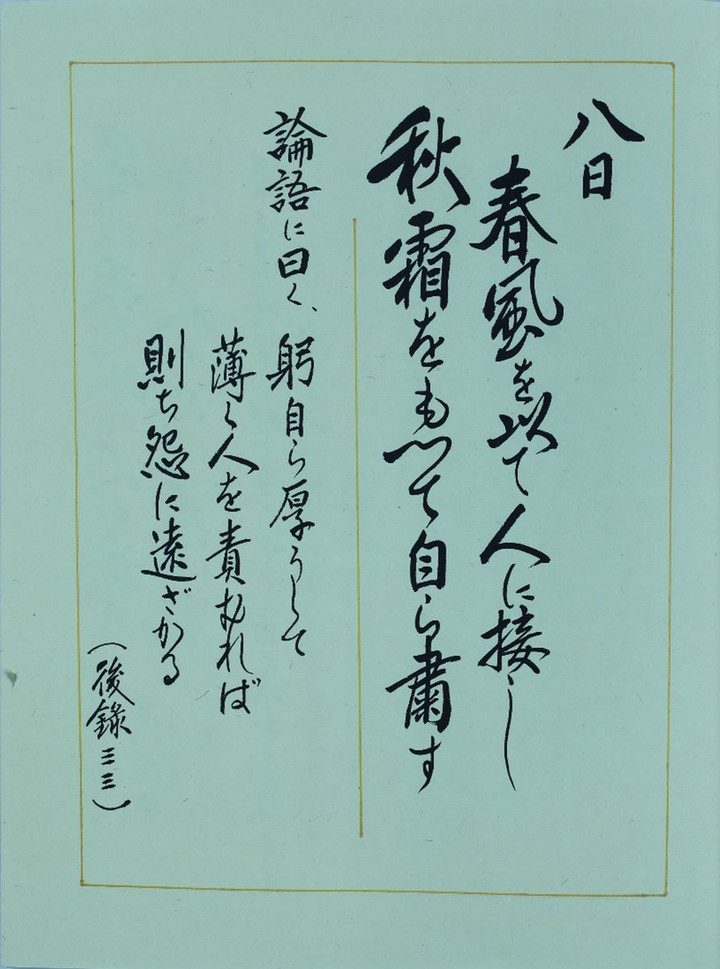 八日
春風を以て人に接し
秋霜をもって自ら粛す
論語に曰く、躬自ら厚うして
薄く人を責むれば
則ち怨に遠ざかる
(後錄三三)